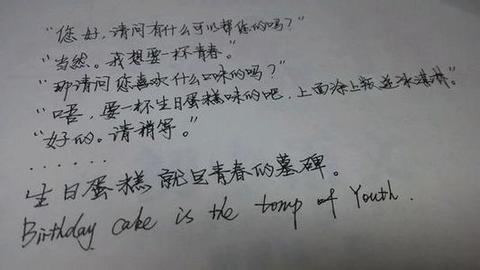 “您好,请问有什么可以帮您的吗?”
“当然。我想要一杯青春。”
“那请问您喜欢什么口味的吗?”
“唔,要一杯生日蛋糕味的吧,上面涂上瓶运冰淇淋。”
“好的。请稍等。”
......
生日蛋糕就是青春的墓碑。
Birthday cake is the tomp of Youth.